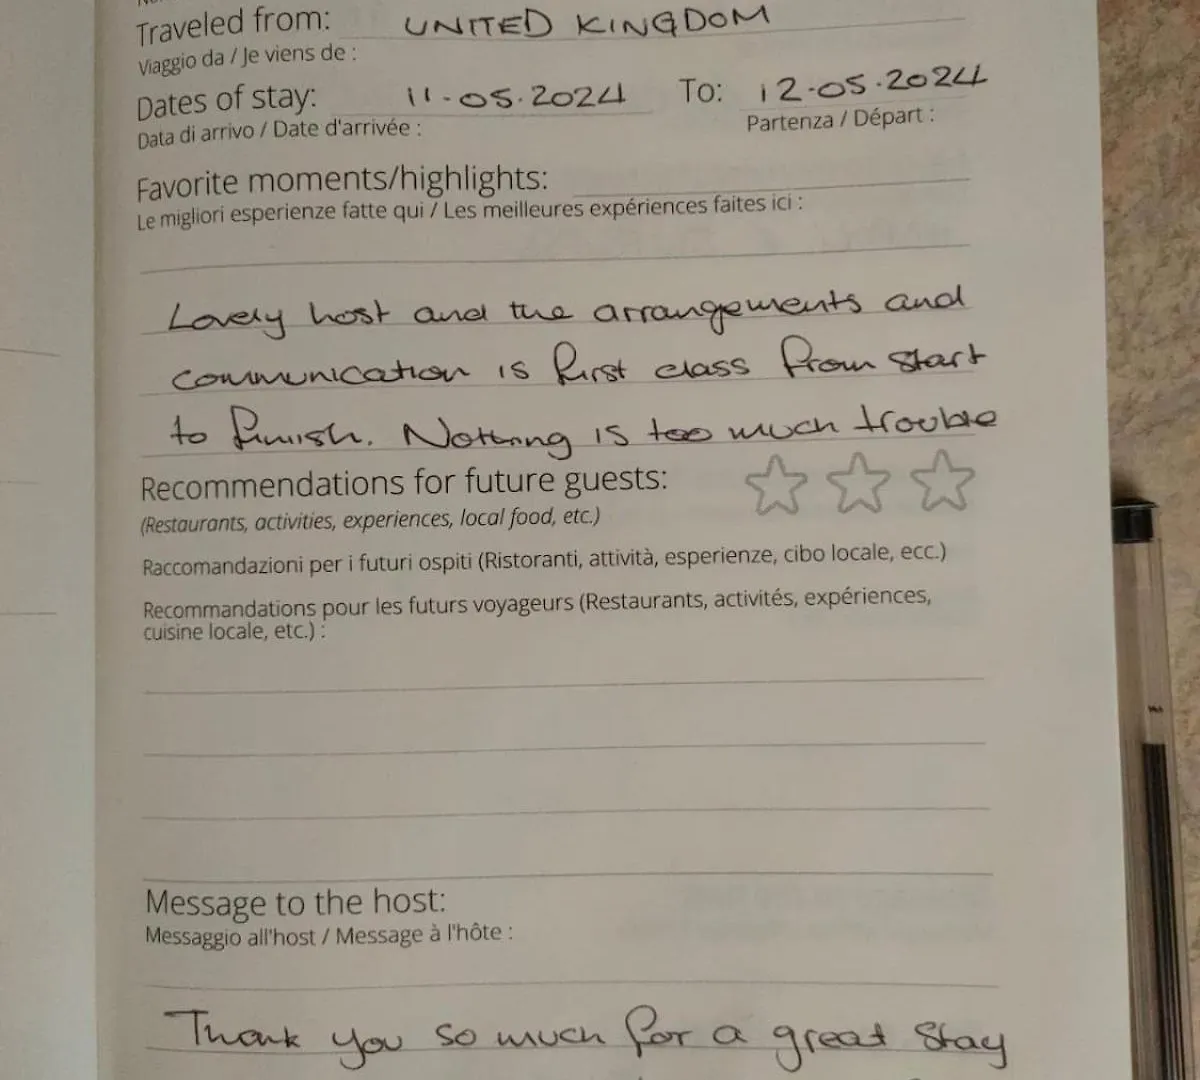 Traveled from: UNITED KINGDOM
Viaggio da / Je viens de :
Dates of stay: 11.05.2024 To: 12.05.2024
Data di arrivo / Date d'arrivée : Partenza / Départ :
Favorite moments/highlights:
Le migliori esperienze fatte qui / Les meilleures expériences faites ici :
Lovely host and the arrangements and
communication is first class from start
to finish. Nothing is too much trouble
Recommendations for future guests:
(Restaurants, activities, experiences, local food, etc.)
Raccomandazioni per i futuri ospiti (Ristoranti, attività, esperienze, cibo locale, ecc.)
Recommandations pour les futurs voyageurs (Restaurants, activités, expériences,
cuisine locale, etc.) :
Message to the host:
Messaggio all'host / Message à l'hôte :
Thank you so much for a great stay